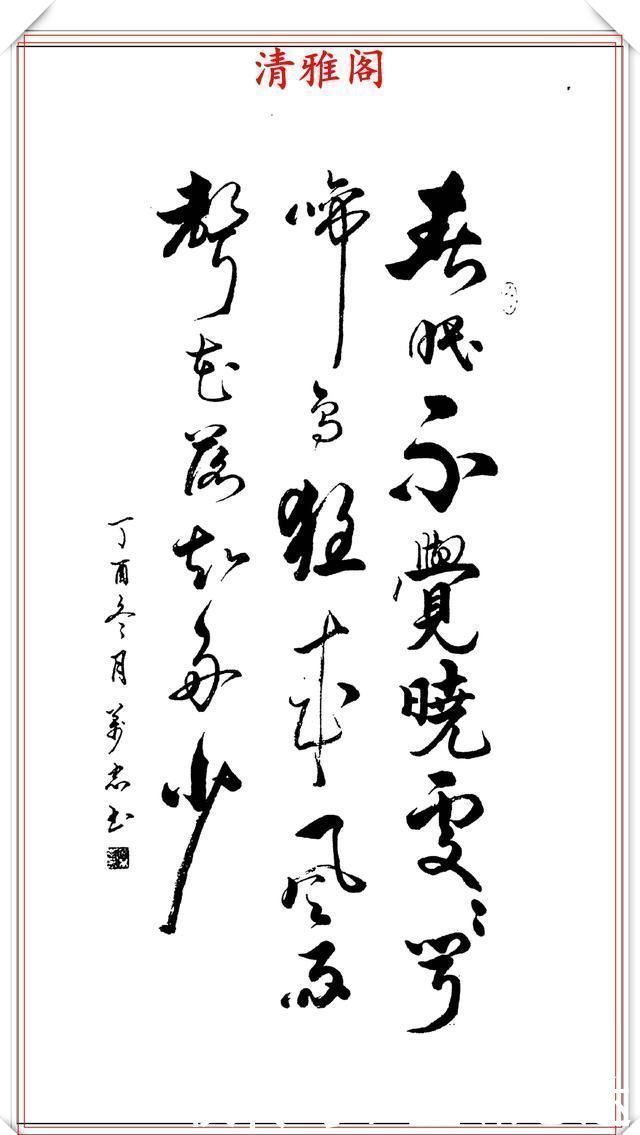 清雅阁
春眠不覺曉處〻聞
啼鳥夜来風雨
聲花落知多少
丁酉冬月萬忠书